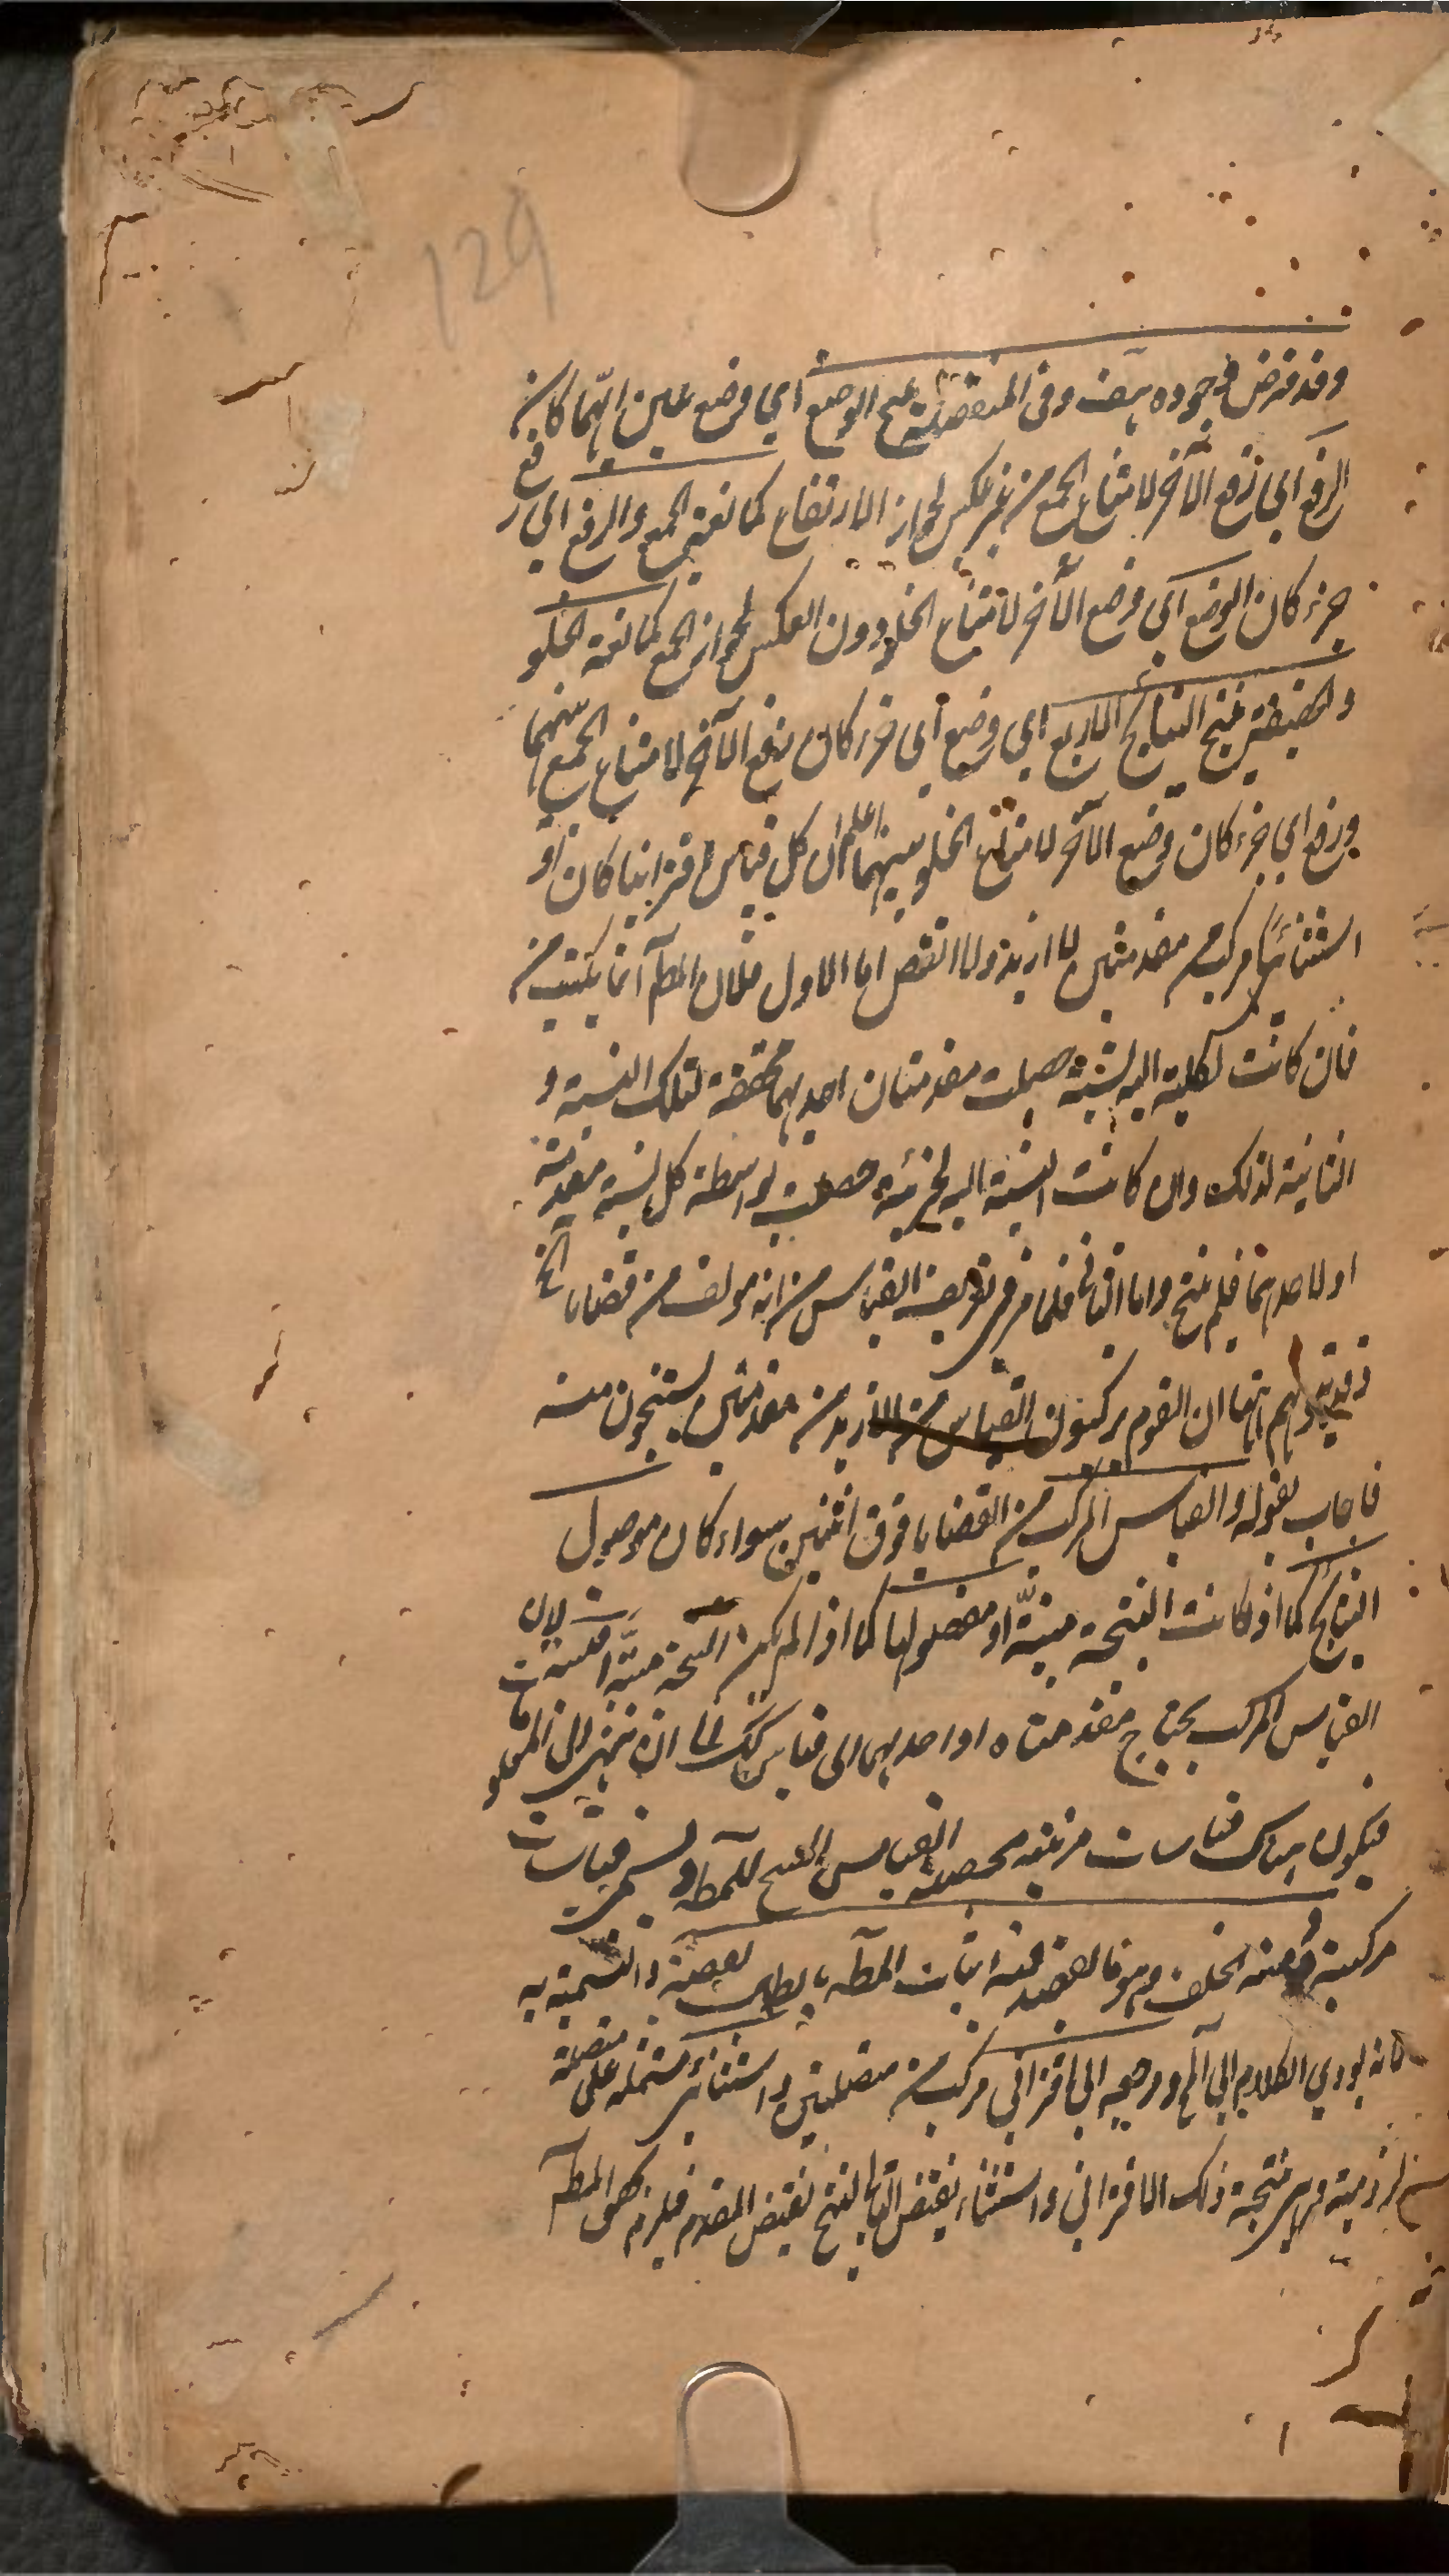 129
وقد فرض وجوده هف وفي المنفصلة ينتج الوضع اي وضع عين ايهما كان
الرفع اي رفع الآخر لامتناع الجمع من غير عكس لجواز الارتفاع كمانعة الجمع والرفع اي رفع
جزء كان الوضع اي وضع الآخر لامتناع الخلو دون العكس لجواز الجمع كمانعة الخلو
والحقيقية ينتج النتايج الاربع اي وضع اي جزء كان رفع الآخر لامتناع الجمع بينهما
ورفع اي جزء كان وضع الآخر لامتناع الخلو بينهما اعلم ان كل قياس اقترانيا كان او
استثنائيا مركب من مقدمتين لا ازيد ولا انقص اما الاول فلان المط انما يكتسب من
فان كانت لكلية اليه نسبة حصلت مقدمتان احديهما محققة لتلك النسبة و
الثانية لذلك وان كانت النسبة اليه لجزئيه حصلت بواسطة كل نسبة مقدمة
اولاحدهما فلم ينتج واما الثاني فلما مر في تعريف القياس من انه مولف من قضايا الخ
يتوهم ههنا ان القوم يركبون القياس من الازيد من مقدمتين يستنتجون منه
فاجاب بقوله والقياس المركب من القضايا فوق اثنين سواء كان موصول
النتايج كما اذا كانت النتيجة مبينة او مفصولها كما اذا لم يكن النتيجة مبينة لان
القياس المركب يحتاج مقدمتاه او احديهما الى قياس كك الى ان ينتهي الى
فيكون هناك قياسات مرتبة محصلة القياس المنتج للمط ويسمى قياسات
مركبة ومنه الخلف وهو ما يقصد فيه اثبات المط بابطال نقيضه والتسمية به
لانه يودي الكلام الى المح ومرجعه الى اقتراني مركب من متصلتين واستثنائي مشتمله على متصلة
لزومية هي نتيجة ذلك الاقتراني واستثناء نقيض التالي لينتج نقيض المقدم فيلزم تحقق المط